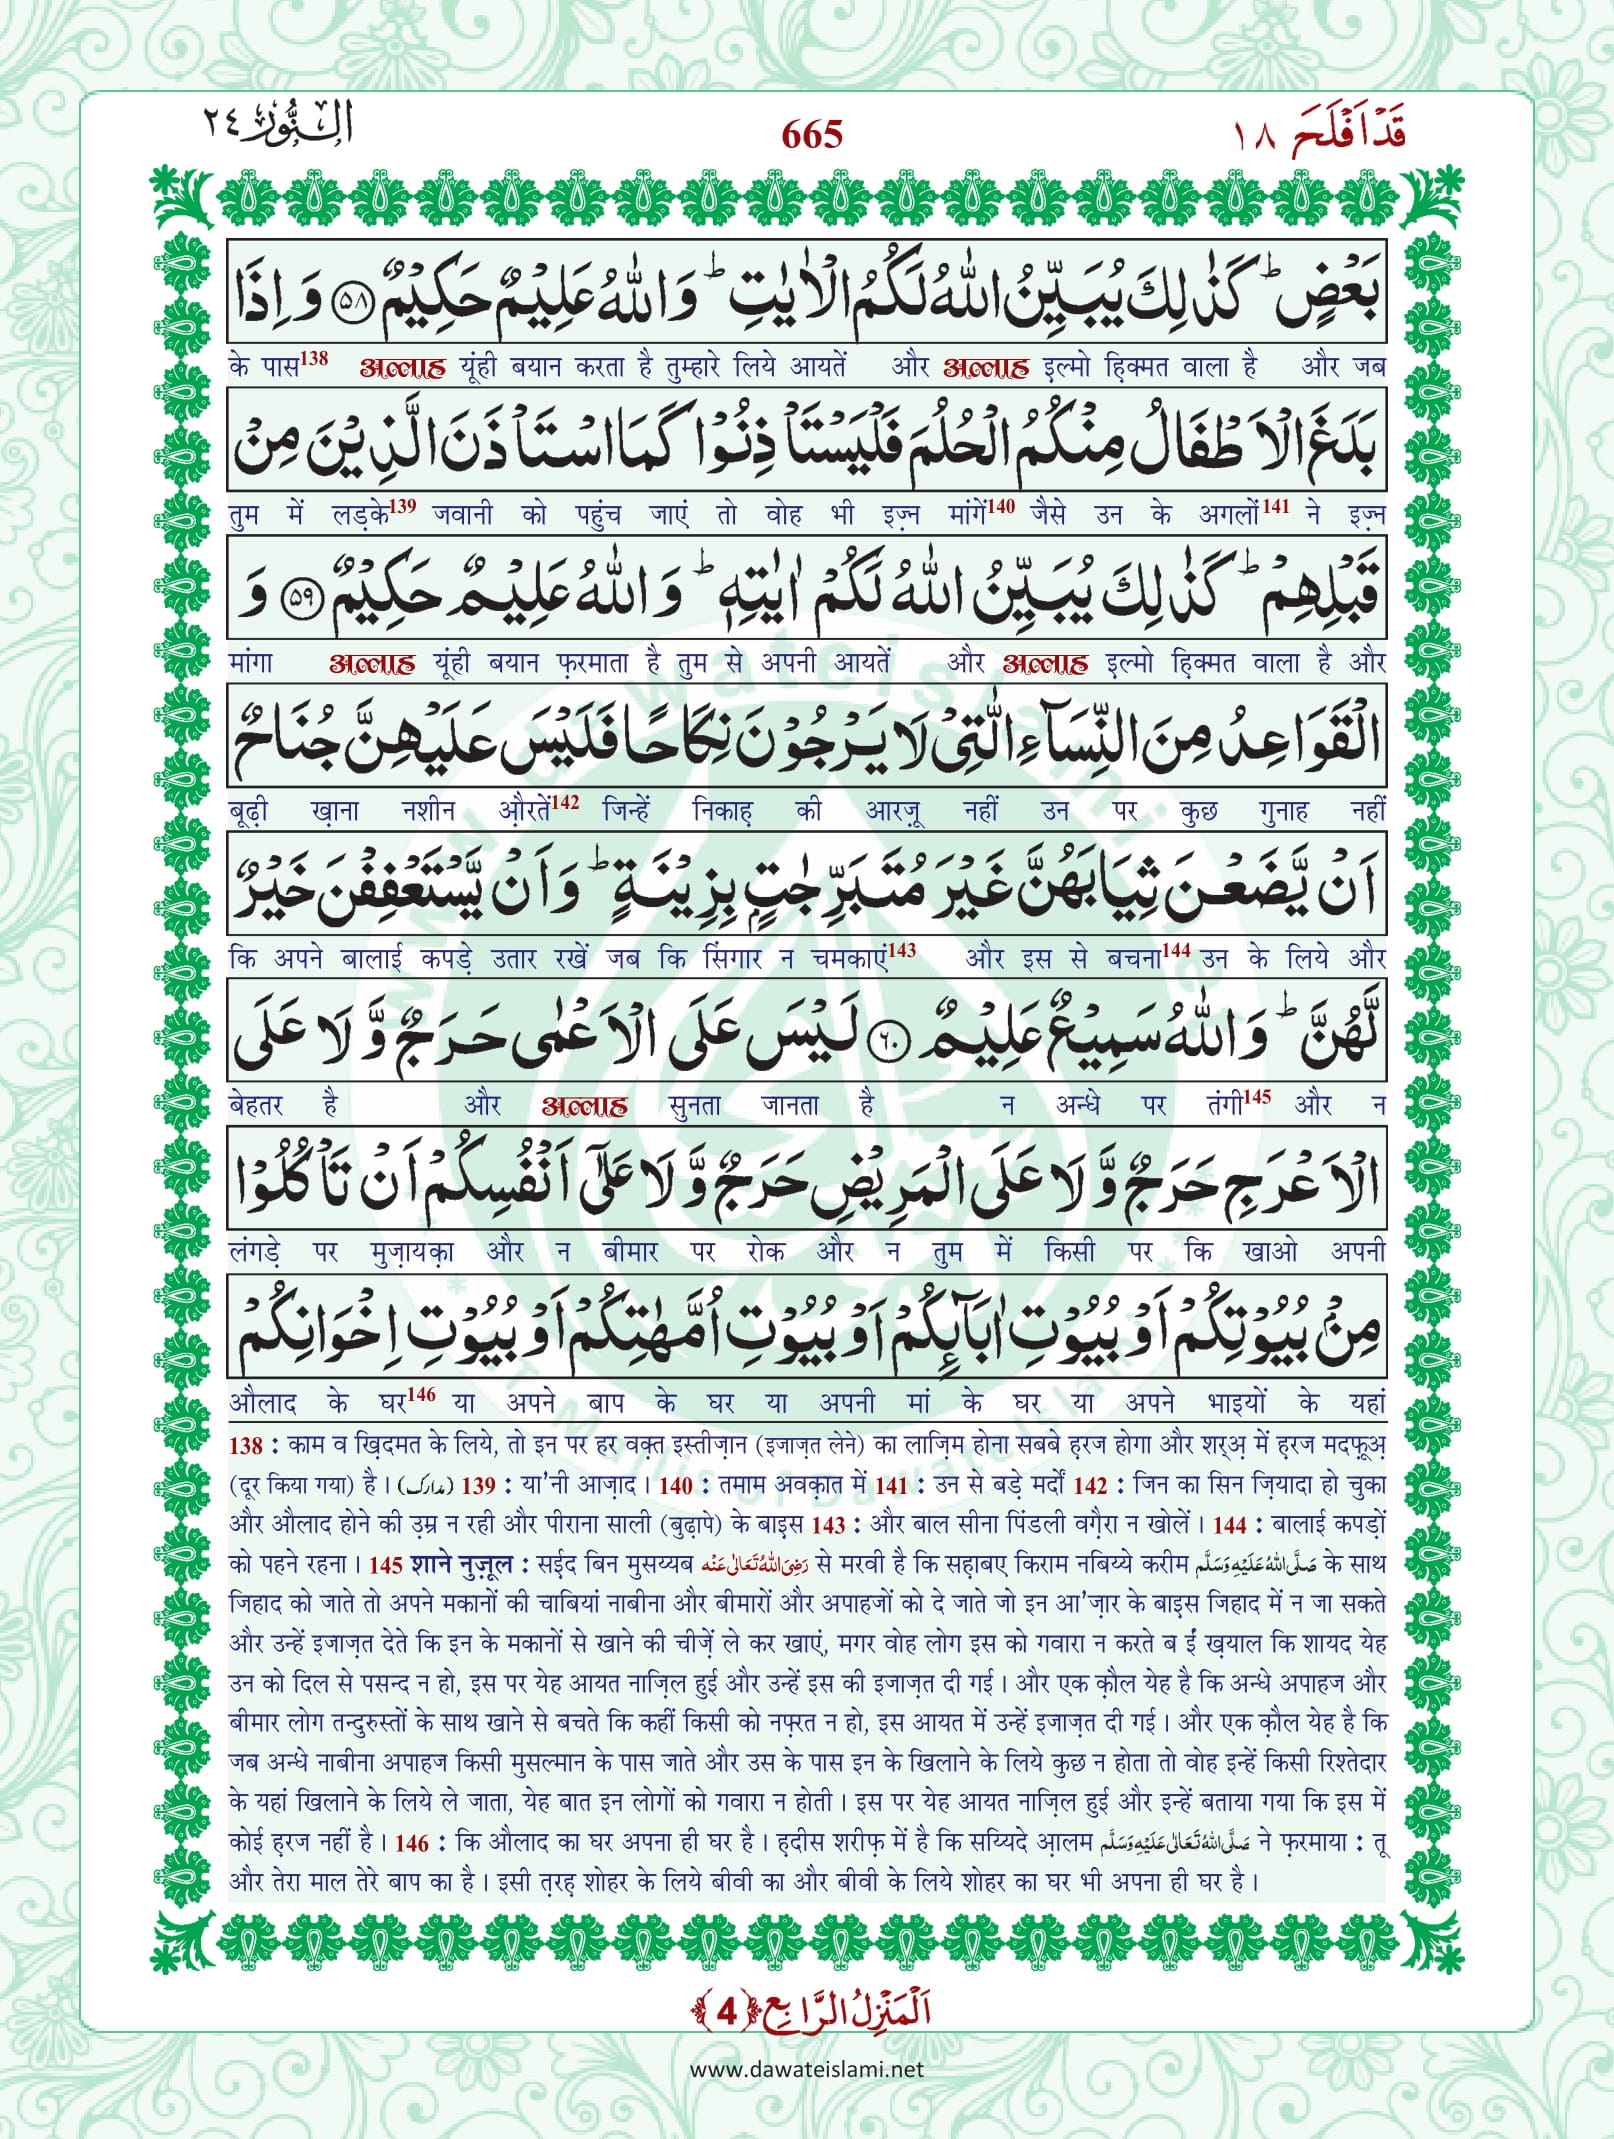 اَلنُّوْر ٢٤
665
قَدْ اَفْلَحَ ١٨
بَعْضٍ ؕ كَذٰلِكَ یُبَیِّنُ اللّٰهُ لَكُمُ الْاٰیٰتِ ؕ وَ اللّٰهُ عَلِیْمٌ حَكِیْمٌ ﴿۵۸﴾ وَ اِذَا
के पास138 अल्लाह यूंही बयान करता है तुम्हारे लिये आयतें और अल्लाह इल्मो हिक्मत वाला है और जब
بَلَغَ الْاَطْفَالُ مِنْكُمُ الْحُلُمَ فَلْیَسْتَاْذِنُوْا كَمَا اسْتَاْذَنَ الَّذِیْنَ مِنْ
तुम में लड़के139 जवानी को पहुंच जाएं तो वोह भी इज़्न मांगें140 जैसे उन के अगलों141 ने इज़्न
قَبْلِهِمْ ؕ كَذٰلِكَ یُبَیِّنُ اللّٰهُ لَكُمْ اٰیٰتِهٖ ؕ وَ اللّٰهُ عَلِیْمٌ حَكِیْمٌ ﴿۵۹﴾ وَ
मांगा अल्लाह यूंही बयान फ़रमाता है तुम से अपनी आयतें और अल्लाह इल्मो हिक्मत वाला है और
الْقَوَاعِدُ مِنَ النِّسَآءِ الّٰتِیْ لَا یَرْجُوْنَ نِكَاحًا فَلَیْسَ عَلَیْهِنَّ جُنَاحٌ
बूढ़ी ख़ाना नशीन औ़रतें142 जिन्हें निकाह़ की आरज़ू नहीं उन पर कुछ गुनाह नहीं
اَنْ یَّضَعْنَ ثِیَابَهُنَّ غَیْرَ مُتَبَرِّجٰتٍۭ بِزِیْنَةٍ ؕ وَ اَنْ یَّسْتَعْفِفْنَ خَیْرٌ
कि अपने बालाई कपड़े उतार रखें जब कि सिंगार न चमकाएं143 और इस से बचना144 उन के लिये और
لَّهُنَّ ؕ وَ اللّٰهُ سَمِیْعٌ عَلِیْمٌ ﴿۶۰﴾ لَیْسَ عَلَى الْاَعْمٰى حَرَجٌ وَّ لَا عَلَى
बेहतर है और अल्लाह सुनता जानता है न अन्धे पर तंगी145 और न
الْاَعْرَجِ حَرَجٌ وَّ لَا عَلَى الْمَرِیْضِ حَرَجٌ وَّ لَا عَلٰۤى اَنْفُسِكُمْ اَنْ تَاْكُلُوْا
लंगड़े पर मुज़ायक़ा और न बीमार पर रोक और न तुम में किसी पर कि खाओ अपनी
مِنْۢ بُیُوْتِكُمْ اَوْ بُیُوْتِ اٰبَآىٕكُمْ اَوْ بُیُوْتِ اُمَّهٰتِكُمْ اَوْ بُیُوْتِ اِخْوَانِكُمْ
औलाद के घर146 या अपने बाप के घर या अपनी मां के घर या अपने भाइयों के यहां
138 : काम व ख़िदमत के लिये, तो इन पर हर वक़्त इस्तीज़ान (इजाज़त लेने) का लाज़िम होना सबबे ह़रज होगा और शर्अ़ में ह़रज मदफ़ूअ़
(दूर किया गया) है। (مدارک) 139 : या'नी आज़ाद। 140 : तमाम अवक़ात में 141 : उन से बड़े मर्दों 142 : जिन का सिन ज़ियादा हो चुका
और औलाद होने की उ़म्र न रही और पीराना साली (बुढ़ापे) के बाइस 143 : और बाल सीना पिंडली वग़ैरा न खोलें। 144 : बालाई कपड़ों
को पहने रहना। 145 शाने नुज़ूल : सई़द बिन मुसय्यब رَضِیَ اللّٰهُ تَعَالٰی عَنْه से मरवी है कि सह़ाबए किराम नबिय्ये करीम صَلَّی اللّٰهُ عَلَیْهِ وَسَلَّم के साथ
जिहाद को जाते तो अपने मकानों की चाबियां नाबीना और बीमारों और अपाहजों को दे जाते जो इन आ'ज़ार के बाइस जिहाद में न जा सकते
और उन्हें इजाज़त देते कि इन के मकानों से खाने की चीज़ें ले कर खाएं, मगर वोह लोग इस को गवारा न करते ब ईं ख़याल कि शायद येह
उन को दिल से पसन्द न हो, इस पर येह आयत नाज़िल हुई और उन्हें इस की इजाज़त दी गई। और एक क़ौल येह है कि अन्धे अपाहज और
बीमार लोग तन्दुरुस्तों के साथ खाने से बचते कि कहीं किसी को नफ़्रत न हो, इस आयत में उन्हें इजाज़त दी गई। और एक क़ौल येह है कि
जब अन्धे नाबीना अपाहज किसी मुसल्मान के पास जाते और उस के पास इन के खिलाने के लिये कुछ न होता तो वोह इन्हें किसी रिश्तेदार
के यहां खिलाने के लिये ले जाता, येह बात इन लोगों को गवारा न होती। इस पर येह आयत नाज़िल हुई और इन्हें बताया गया कि इस में
कोई ह़रज नहीं है। 146 : कि औलाद का घर अपना ही घर है। ह़दीस शरीफ़ में है कि सय्यिदे आ़लम صَلَّی اللّٰهُ تَعَالٰی عَلَیْهِ وَسَلَّم ने फ़रमाया : तू
और तेरा माल तेरे बाप का है। इसी त़रह़ शोहर के लिये बीवी का और बीवी के लिये शोहर का घर भी अपना ही घर है।
اَلْمَنْزِلُ الرَّابِع ﴿4﴾
www.dawateislami.net